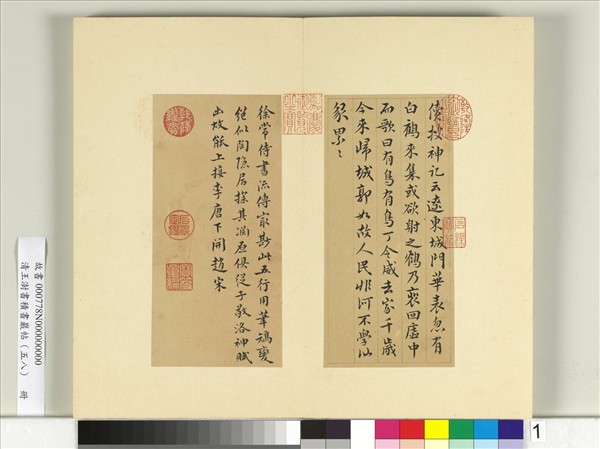 續搜神記云遼東城門華表忽有
白鶴來集或欲射之鶴乃裵回虛中
而歌曰有鳥有鳥丁令威去家千歲
今來歸城郭如故人民非何不學仙
冢累〻
徐常侍書流傳宸尠此五行用筆矯變
絕似陶隱居探其淵原俱從子敬洛神賦
出故能上接李唐下開趙宋
故書 000778N000000000
清王澍書積書巖帖（五八） 冊
1